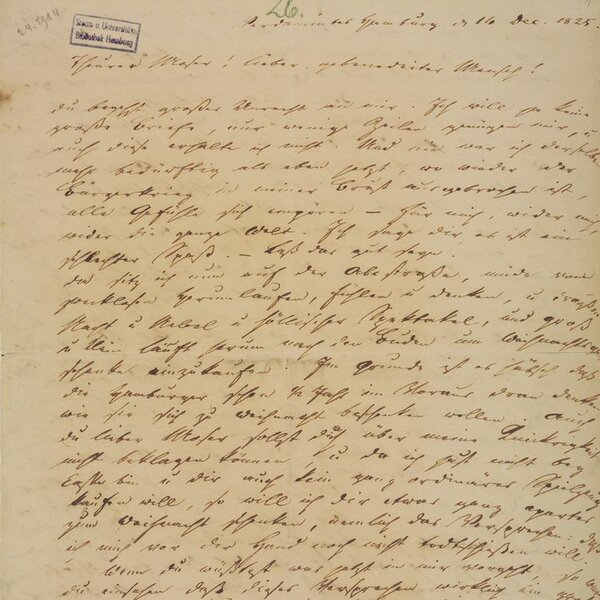 26.
24.1914
Staats- u. Universitäts-
Bibliothek Hamburg
Verdammtes Hamburg d 14 Dec. 1825.
Theurer Moser! Lieber, gebenedeiter Mensch!
du begehst großes Unrecht an mir. Ich will ja keine
große Briefe, nur wenige Zeilen genügen mir, u
auch diese erhalte ich nicht. Und nie war ich derselben
mehr bedürftig als eben jetzt, wo wieder der
Bürgerkrieg in meiner Brust ausgebrochen ist,
alle Gefühle sich empören – für mich, wider mich,
wider die ganze Welt. Ich sage dir es ist ein
schlechter Spaß. – Laß das gut seyn.
Da sitz ich nun auf der Abcstraße, müde vom
zwecklosen Herumlaufen, Fühlen u Denken, u draußen
Nacht u Nebel u höllischer Spektakel, und groß
u klein läuft herum nach den Buden um Weihnachts
schenke einzukaufen. Im Grunde ist es hübsch daß
die Hamburger schon ½ Jahr im Voraus dran denken
wie sie sich zu Weihnacht beschenken wollen. Auch
du lieber Moser sollst dich über meine Knickrigkeit
nicht beklagen können, u da ich just nicht bey
Casse bin u dir auch kein ganz ordinäres Spielzeug
kaufen will, so will ich dir etwas ganz apartes
zum Weihnacht schenken, nemlich das Versprechen: daß
ich mich vor der Hand noch nicht todtschießen will.
Wenn du wüßtest was jetzt in mir vorgeht, so
du einsehen daß dieses Versprechen wirklich ein